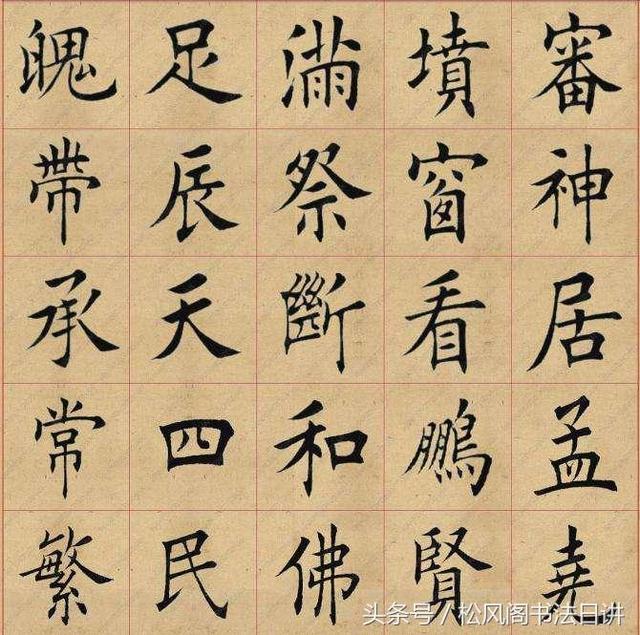 審神居孟堯
墳窗看鵬賢
滿祭斷和佛
足辰天四民
魄帶承常繁
头条号/松风阁书法日讲